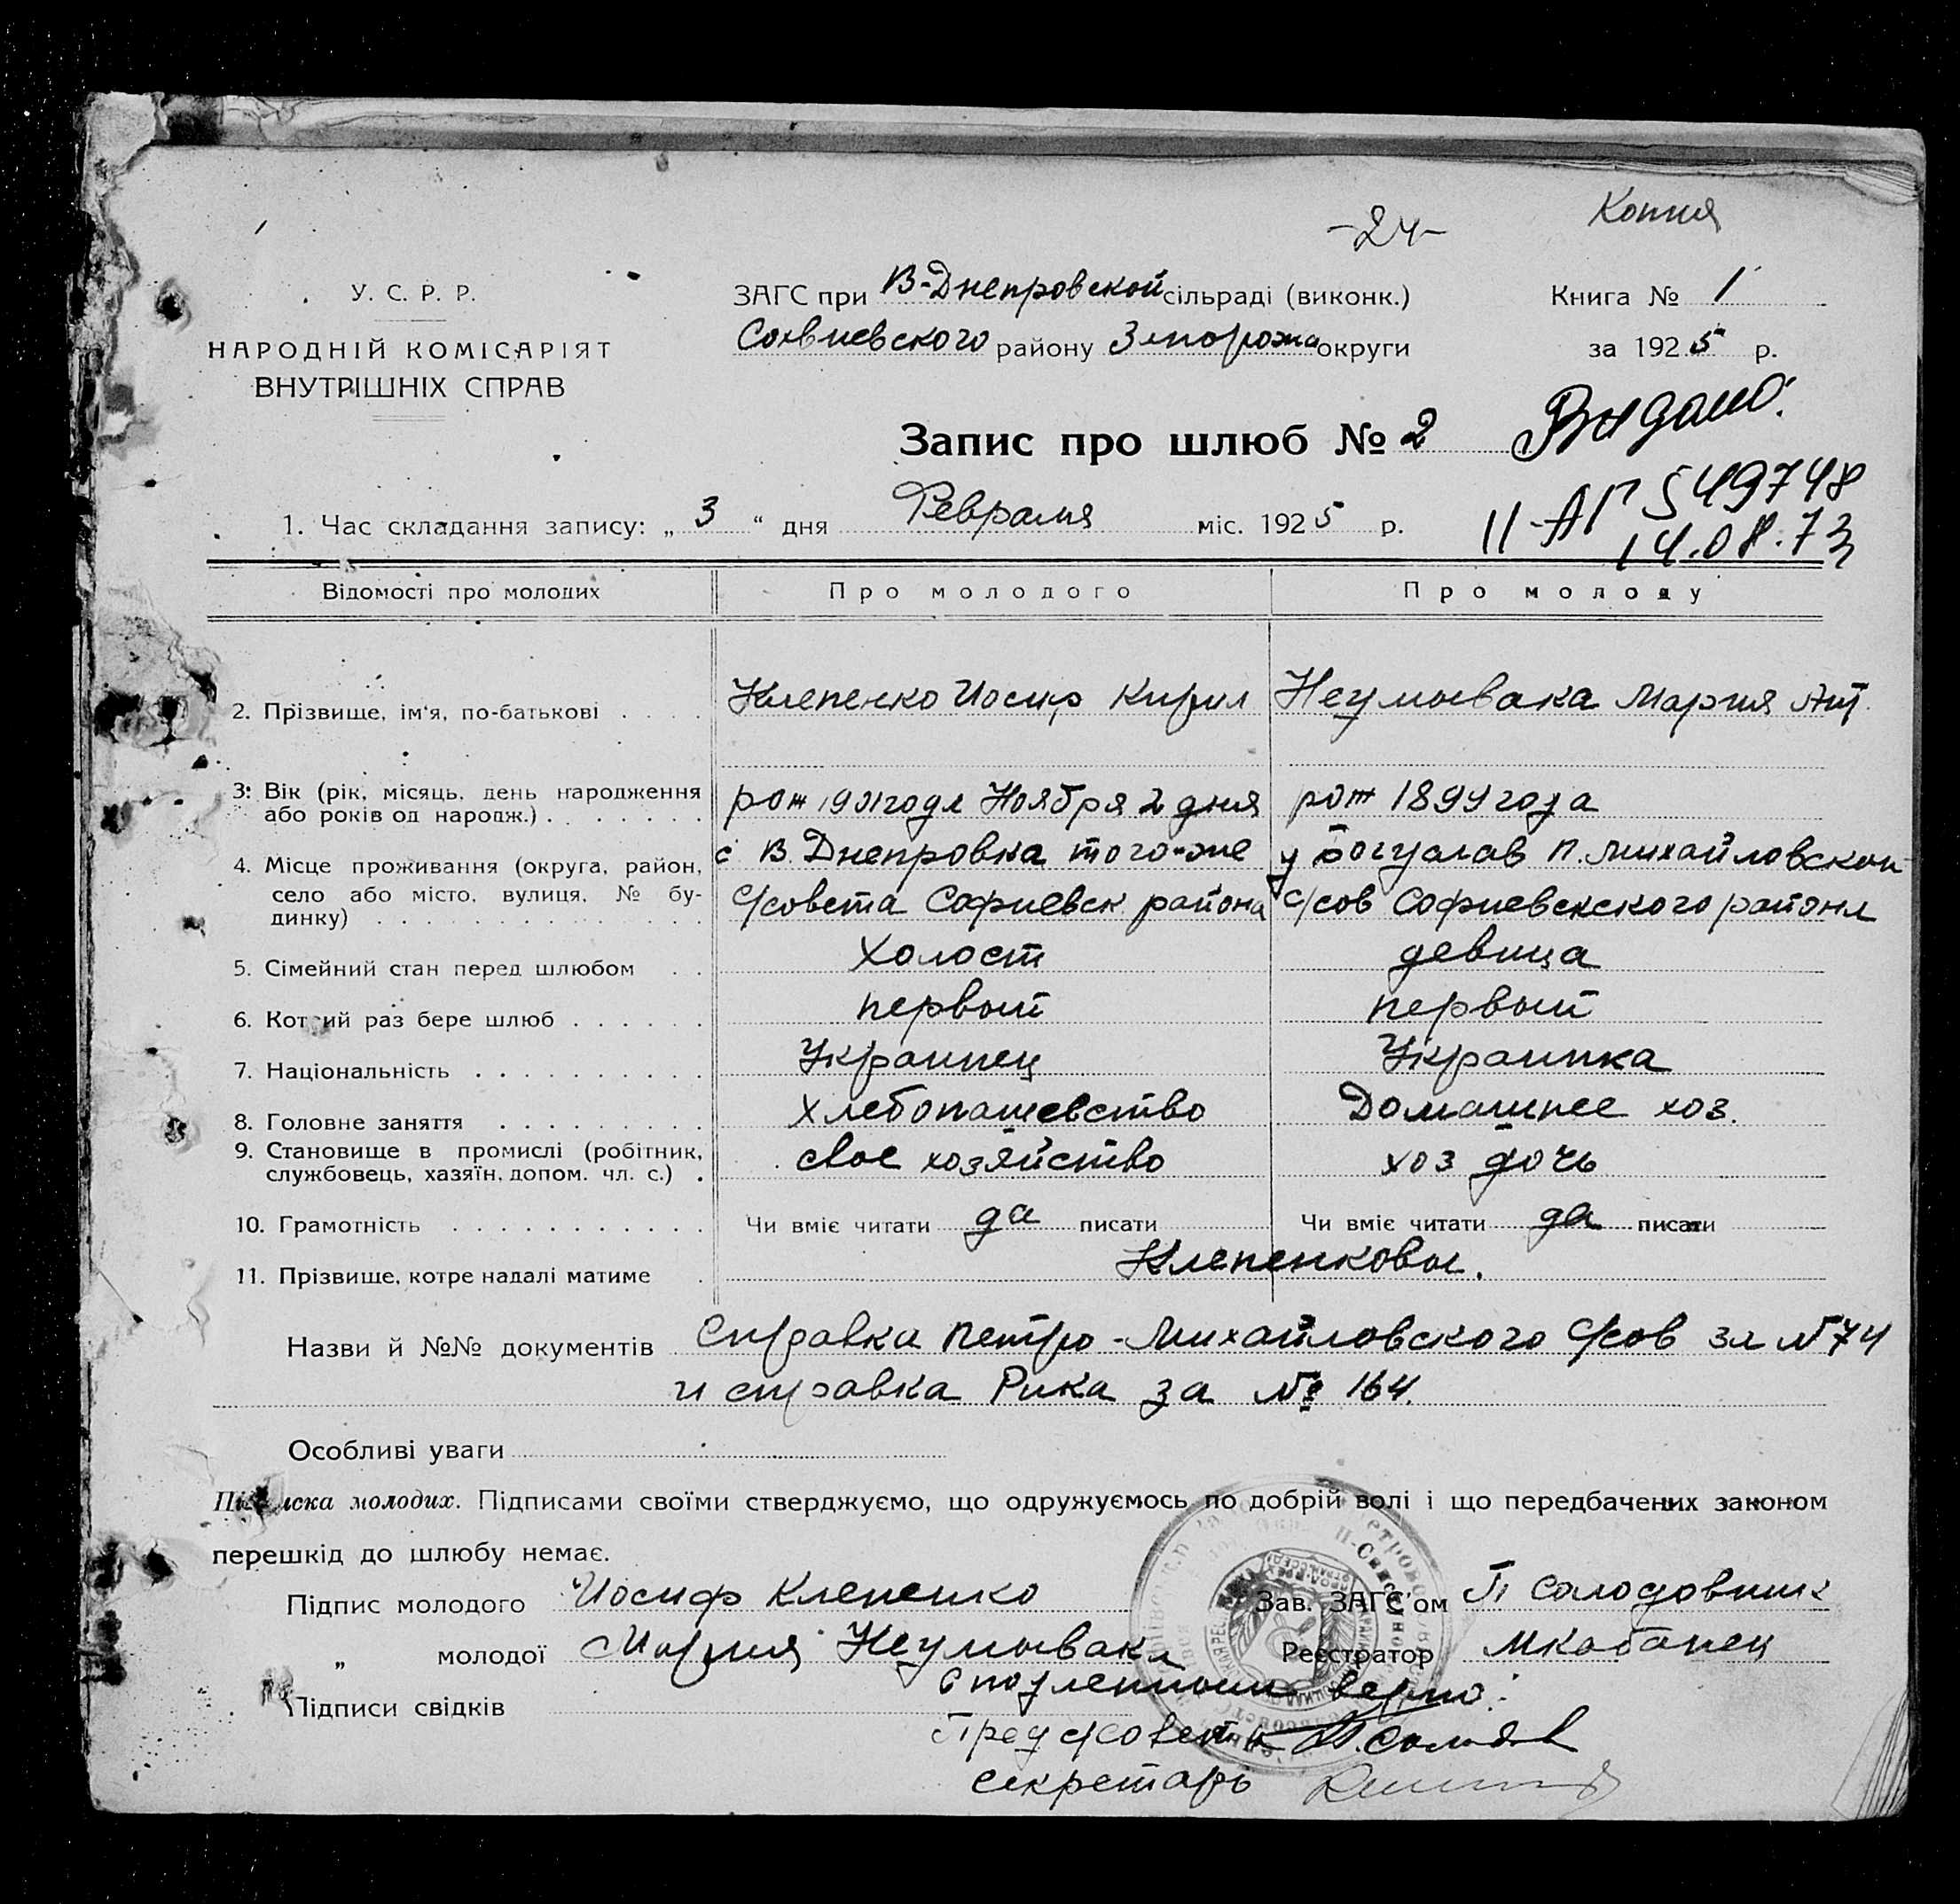 -24-
Копия
У. С. Р. Р.
НАРОДНІЙ КОМІСАРІЯТ
ВНУТРІШНІХ СПРАВ
ЗАГС при В-Днепровской сільраді (виконк.)
району округи
Книга № 1
за 1925 р.
Запис про шлюб № 2
Видано.
II-АП 549748
14.08.73
1. Час складання запису: „ 3 “ дня Февраля міс. 1925 р.
Відомості про молодих Про молодого Про молоду
2. Прізвище, ім'я, по-батькові Клепенко Иосиф Кирил Неумывака Мария Ант
3. Вік (рік, місяць, день народження рож 1901 года Ноября 2 дня рож 1899 года
або років од народж.)
4. Місце проживання (округа, район, с В. Днепровка того-же П. Михайловской
село або місто, вулиця, № бу- с/совета Софиевск района с/сов Софиевскского района
динку)
5. Сімейний стан перед шлюбом Холост девица
6. Котрий раз бере шлюб первый первый
7. Національність Украинец Украинка
8. Головне заняття хлебопашевство Домашнее хоз.
9. Становище в промислі (робітник, свое хозяйство хоз дочь
службовець, хазяїн, допом. чл. с.)
10. Грамотність Чи вміє читати да писати Чи вміє читати да писати
11. Прізвище, котре надалі матиме Клепенковы.
Назви й №№ документів Справка Петро-Михайловского с/сов за №74
и справка Рика за № 164.
Особливі уваги
Підписка молодих. Підписами своїми стверджуємо, що одружуємось по добрій волі і що передбачених законом
перешкід до шлюбу немає.
Підпис молодого Иосиф Клепенко Зав. ЗАГС'ом П Солодовник
„ молодої Мария Неумывака Реєстратор Мкобанец
С подленным верно:
Підписи свідків
Пред с/совета
секретарь